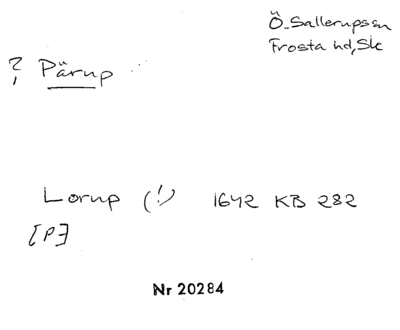 Ö. Sallerups sn
Frosta hd, Sk
? Pärup
Lorup (!) 1642 KB 282
[P]
Nr 20284